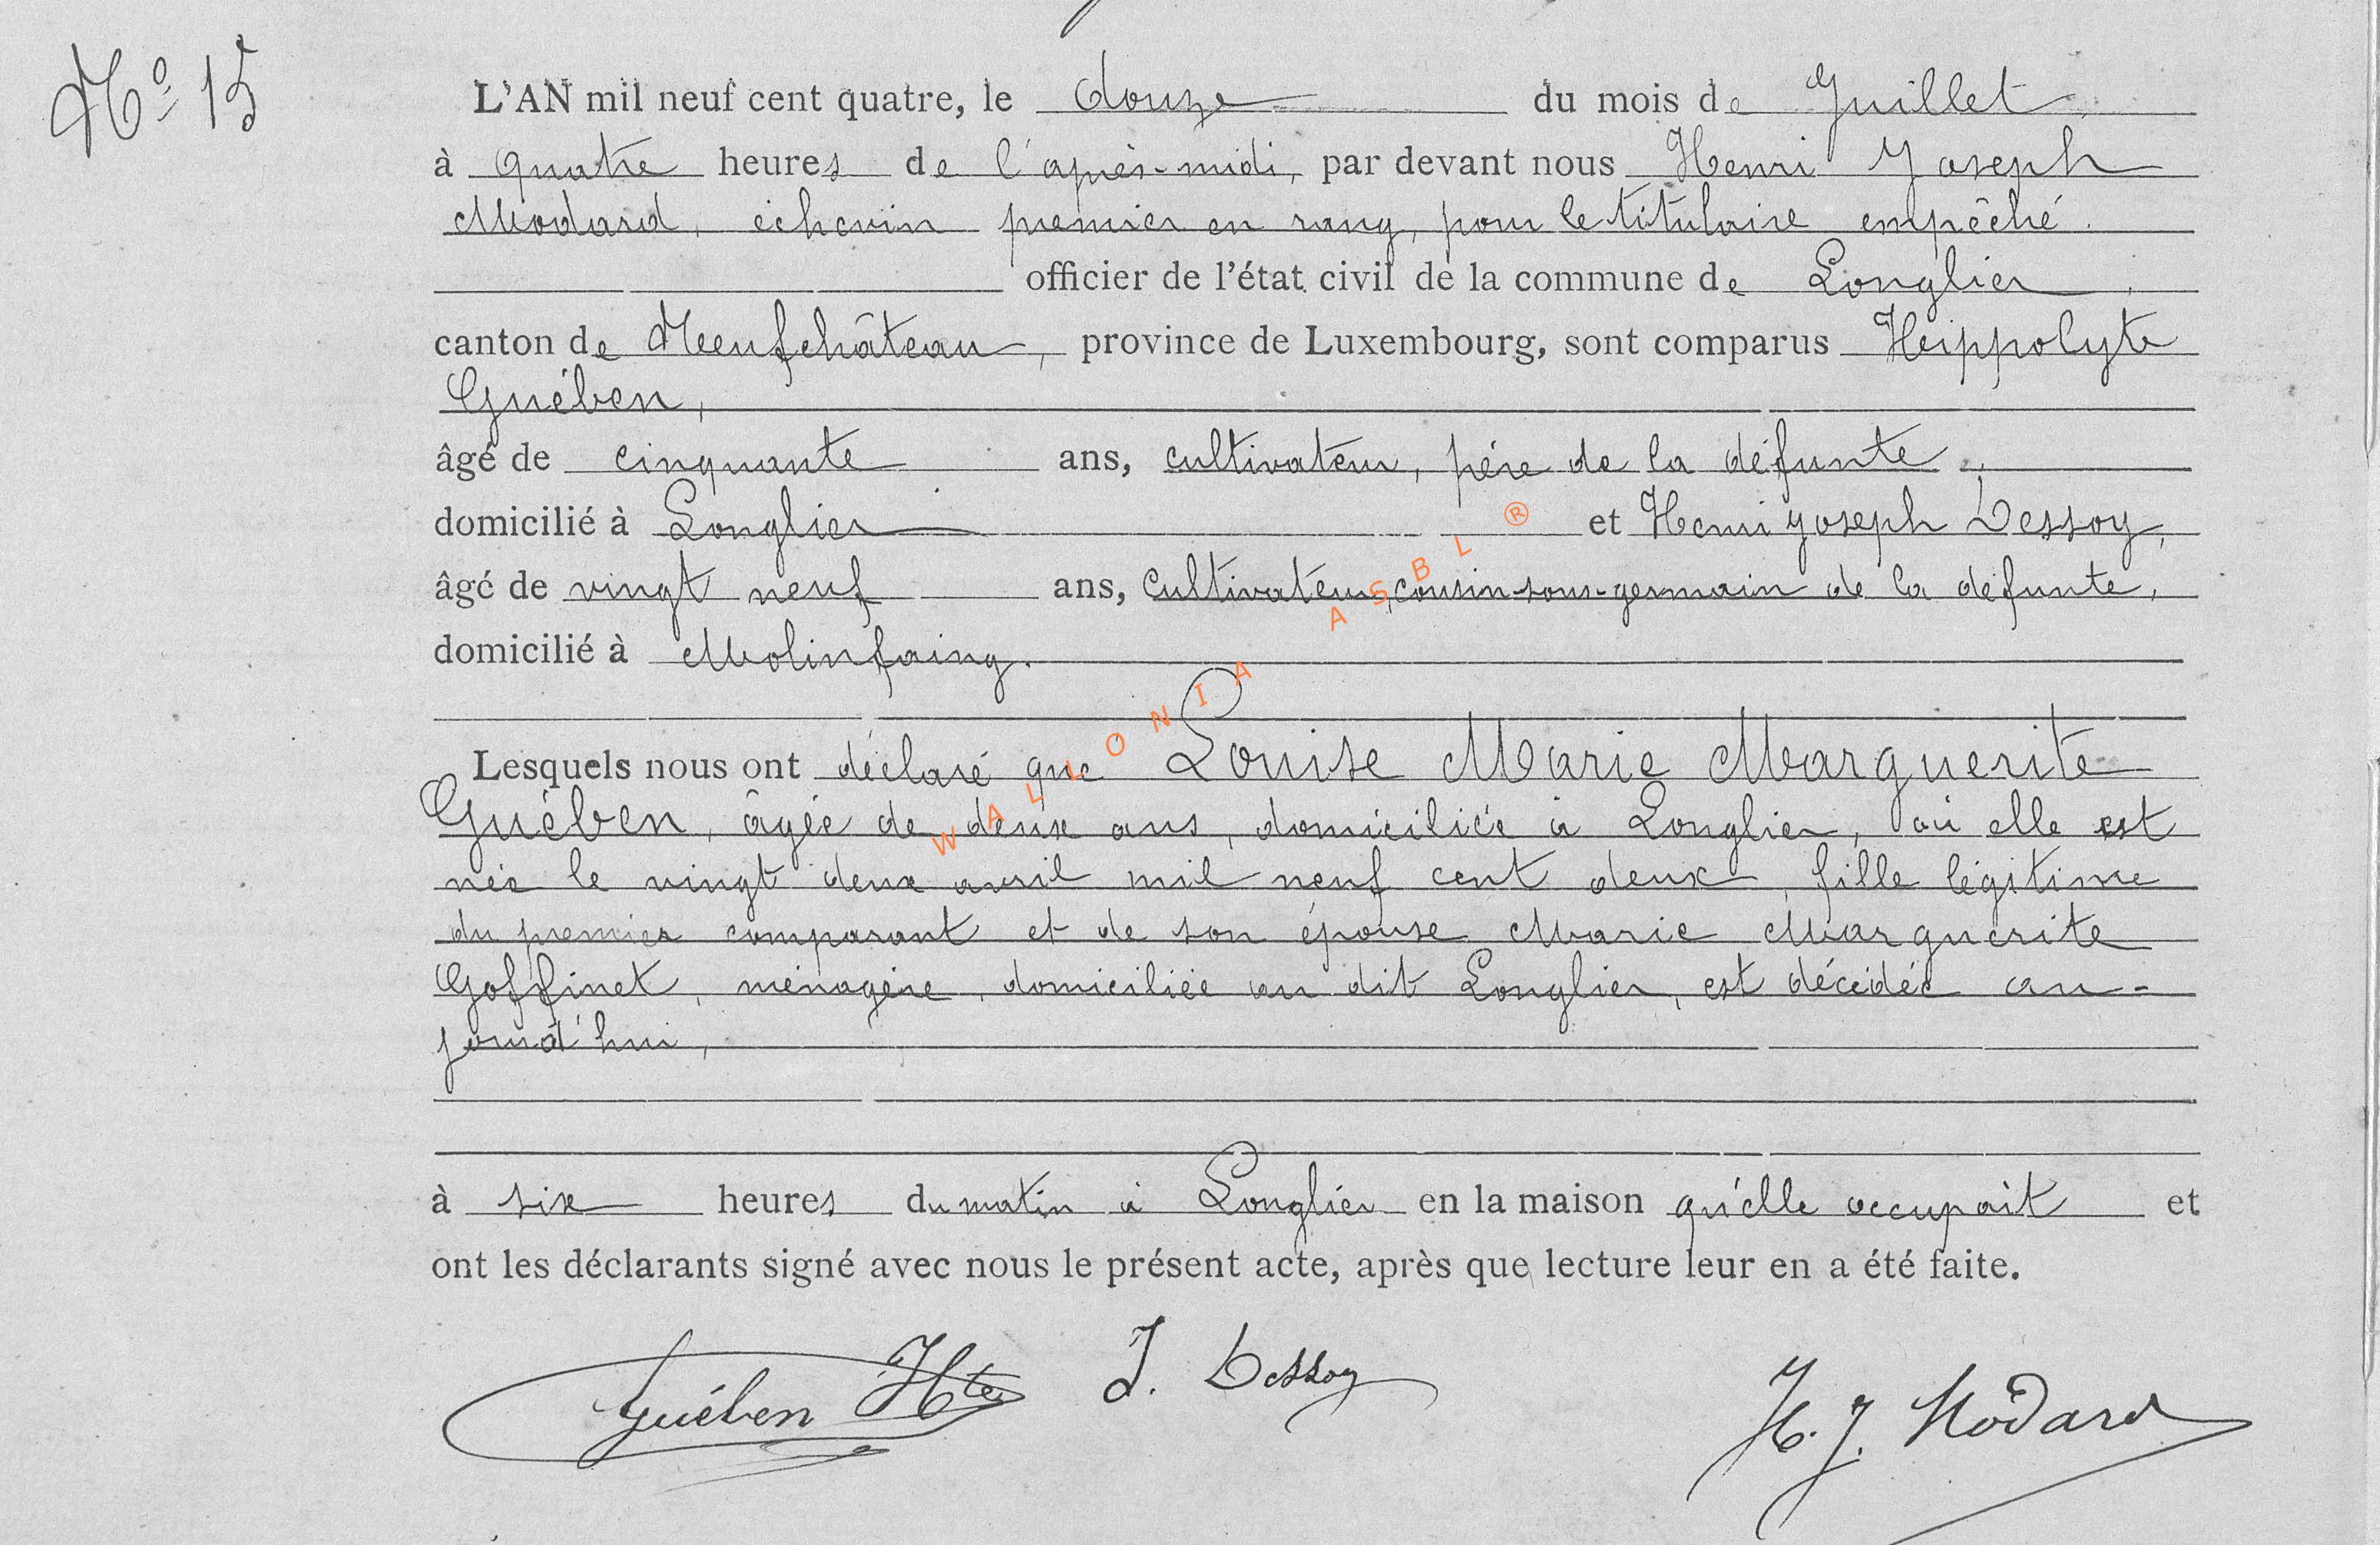 N° 15
L'AN mil neuf cent quatre, le douze du mois de Juillet,
à quatre heures de l'après-midi, par devant nous Henri Joseph
Modard, échevin premier en rang, pour le titulaire empêché.
officier de l'état civil de la commune de Longlier,
canton de Neufchâteau, province de Luxembourg, sont comparus Hippolyte
Guében,
âgé de cinquante ans, cultivateur, père de la défunte,
domicilié à Longlier et Henri Joseph Dessoy,
âgé de vingt neuf ans, cultivateur, cousin sous-germain de la défunte,
domicilié à Molinfaing.
Lesquels nous ont déclaré que Louise Marie Marguerite
Guében, âgée de deux ans, domiciliée à Longlier, où elle est
née le vingt deux avril mil neuf cent deux, fille légitime
du premier comparant et de son épouse Marie Marguerite
Goffinet, ménagère, domiciliée au dit Longlier, est décédée au-
jourd'hui,
à six heures du matin à Longlier en la maison qu'elle occupait et
ont les déclarants signé avec nous le présent acte, après que lecture leur en a été faite.
Guében Hte J. Dessoy H. J. Modard
WALLONIA ASBL ®